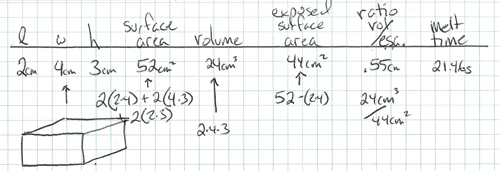 l w h surface area volume exposed surface area ratio vol/esa. melt time
2cm 4cm 3cm 52cm² 24cm³ 44cm² .55cm 21.46s
2(2·4) + 2(4·3) + 2(2·3)
2·4·3
52-(2·4)
24cm³/44cm²